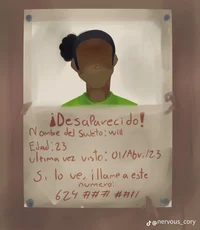 ¡Desaparecido!
Nombre del sujeto: will
Edad: 23
ultima vez visto: 01/Abr./23
Si lo ve, ¡llame a este
numero:
624 ### ####
@nervous_cory